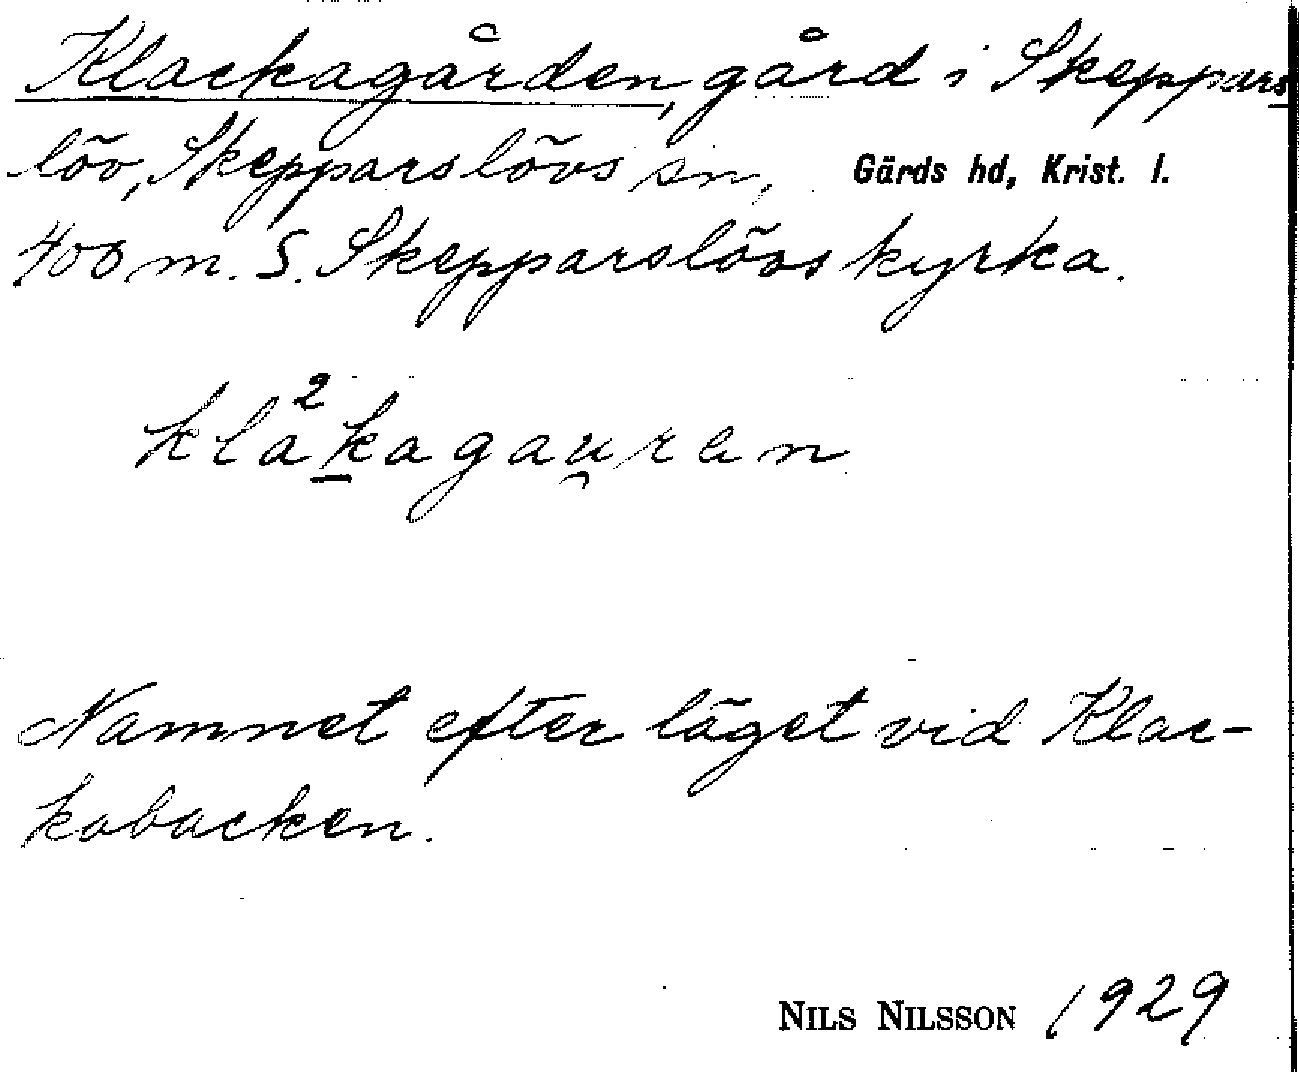 Klackagården, gård i Skeppars
löv, Skepparslövs sn, Gärds hd, Krist. l.
400 m. S. Skepparslövs kyrka.
kla²k̲agau̯ren
Namnet efter läget vid Klac-
kabacken.
NILS NILSSON 1929